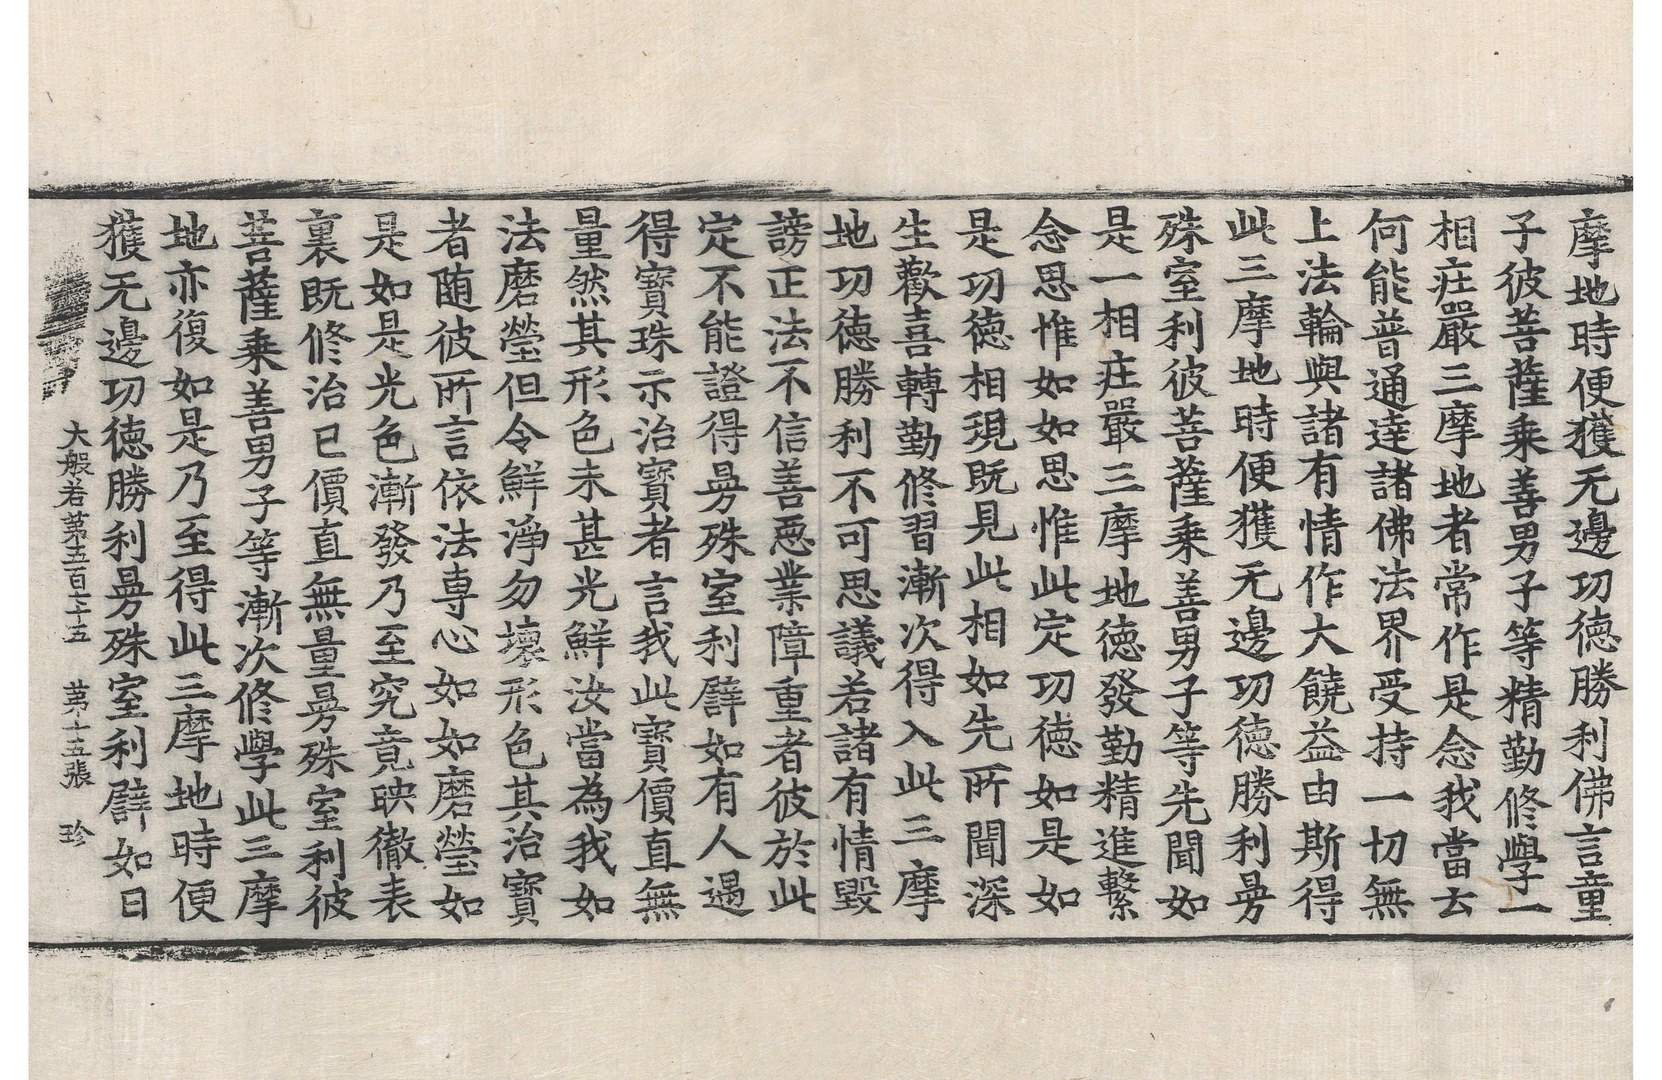 摩地時便獲无邊功德勝利佛言童
子彼菩薩乘善男子等精勤修學一
相莊嚴三摩地者常作是念我當去
何能普通達諸佛法界受持一切無
上法輪與諸有情作大饒益由斯得
此三摩地時便獲无邊功德勝利曼
殊室利彼菩薩乘善男子等先聞如
是一相莊嚴三摩地德發勤精進繫
念思惟如如思惟此定功德如是如
是功德相現既見此相如先所聞深
生歡喜轉勤修習漸次得入此三摩
地功德勝利不可思議若諸有情毀
謗正法不信善惡業障重者彼於此
定不能證得曼殊室利譬如有人遇
得寶珠示治寶者言我此寶價直無
量然其形色未甚光鮮汝當為我如
法磨瑩但令鮮淨勿壞形色其治寶
者随彼所言依法專心如如磨瑩如
是如是光色漸發乃至究竟映徹表
裏既修治已價直無量曼殊室利彼
菩薩乘善男子等漸次修學此三摩
地亦復如是乃至得此三摩地時便
獲无邊功德勝利曼殊室利譬如日
大般若第五百七十五 第十五張 珍